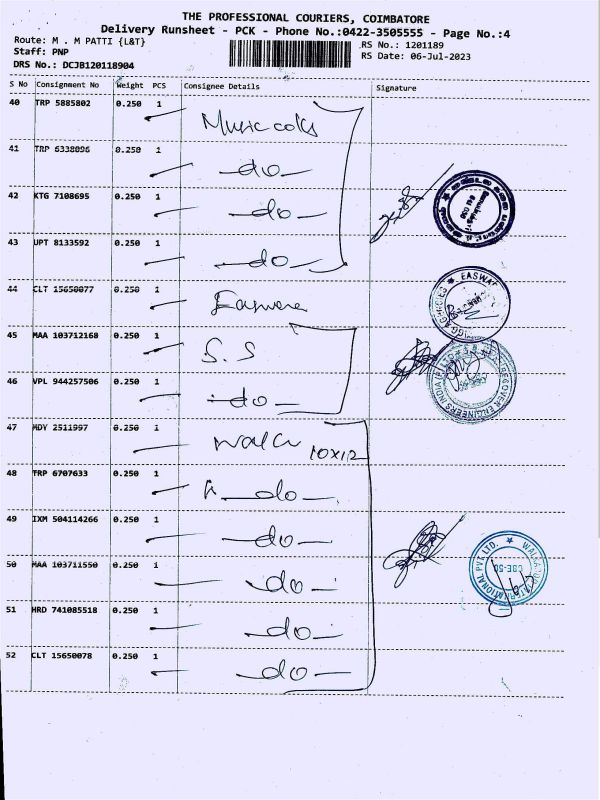 THE PROFESSIONAL COURIERS, COIMBATORE
Delivery Runsheet - PCK - Phone No.:0422-3505555 - Page No.:4
Route: M . M PATTI {L&T}
RS No.: 1201189
Staff: PNP
RS Date: 06-Jul-2023
DRS No.: DCJB120118904
S No Consignment No Weight PCS Consignee Details Signature
40 TRP 5885802 0.250 1
41 TRP 6338096 0.250 1 do
42 KTG 7108695 0.250 1 do
43 UPT 8133592 0.250 1 do
44 CLT 15650077 0.250 1
EASWAR
AGENCIES
45 MAA 103712168 0.250 1 S.S
ENGINEERS INDIA
46 VPL 944257506 0.250 1 do
47 MDY 2511997 0.250 1 10x12
48 TRP 6707633 0.250 1 do
49 IXM 504114266 0.250 1 do
PVT LTD.
CBE-50
50 MAA 103711550 0.250 1 do
51 HRD 741085518 0.250 1 do
52 CLT 15650078 0.250 1 do